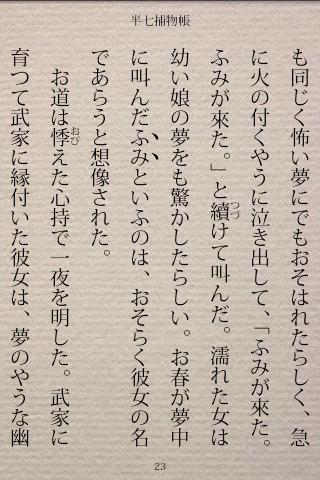 半七捕物帳
も同じく怖い夢にでもおそはれたらしく、急
に火の付くやうに泣き出して、「ふみが來た。
ふみが來た。」と續つづけて叫んだ。濡れた女は
幼い娘の夢をも驚かしたらしい。お春が夢中
に叫んだふみといふのは、おそらく彼女の名
であらうと想像された。
お道は悸おびえた心持で一夜を明した。武家に
育つて武家に縁付いた彼女は、夢のやうな幽
23